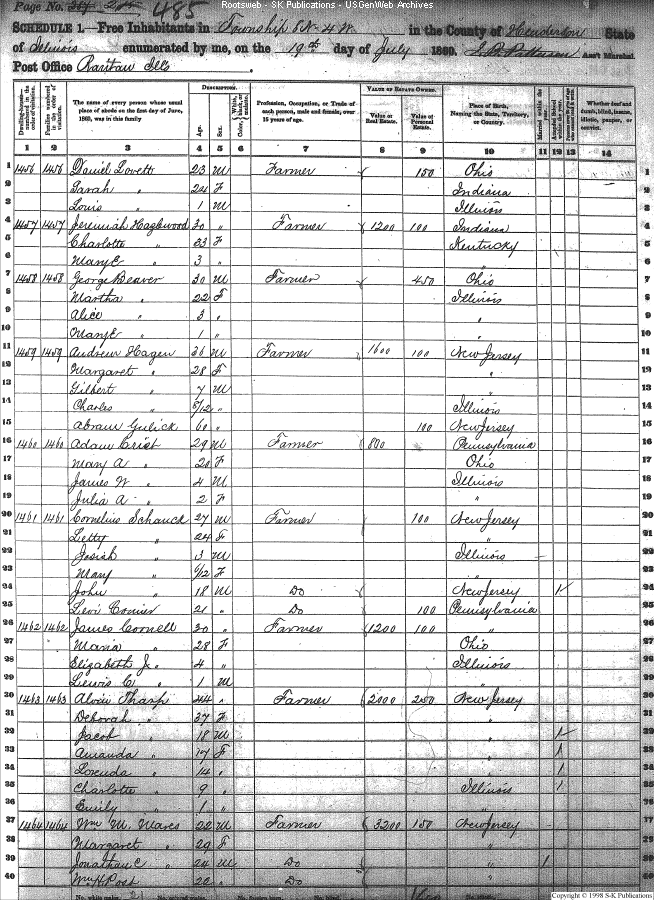 Rootsweb - SK Publications - USGenWeb Archives
Page No. 485
SCHEDULE 1.—Free Inhabitants in Township 8 N - 4 W in the County of Henderson State
of Illinois enumerated by me, on the 19th day of July 1860. Ass't Marshal.
Post Office Raritan Ills
Dwelling-houses numbered in the order of visitation.
Families numbered in the order of visitation.
The name of every person whose usual place of abode on the first day of June, 1860, was in this family
DESCRIPTION.
Age.
Sex.
Color
Profession, Occupation, or Trade of each person, male and female, over 15 years of age.
VALUE OF ESTATE OWNED.
Value of Real Estate.
Value of Personal Estate.
Place of Birth, Naming the State, Territory, or Country.
Married within the year.
Whether deaf and dumb, blind, insane, idiotic, pauper, or convict.
1 2 3 4 5 6 7 8 9 10 11 12 13 14
1 1456 1456 Daniel Lovett 23 M Farmer 150 Ohio 1
2 Sarah " 24 F Indiana 2
3 Louis " 1 M Illinois 3
4 1457 1457 Jeremiah Hazlewood 30 " Farmer 1200 100 Indiana 4
5 Charlotte " 23 F Kentucky 5
6 Mary E " 3 " 6
7 1458 1458 George Beaver 30 M Farmer 450 Ohio 7
8 Martha " 22 F Illinois 8
9 Alice " 3 " " 9
10 Mary E " 1 " " 10
11 1459 1459 Andrew Hagen 36 M Farmer 1600 100 New Jersey 11
12 Margaret " 28 F " 12
13 Gilbert " 7 M " 13
14 Charles " 5/12 " Illinois 14
15 Abram Gulick 60 " 100 New Jersey 15
16 1460 1460 Adam Crist 29 M Farmer 800 Pennsylvania 16
17 Mary A " 20 F Ohio 17
18 James W " 4 M Illinois 18
19 Julia A " 2 F " 19
20 1461 1461 Cornelius Schanck 27 M Farmer 100 New Jersey 20
21 Letty " 24 F " 21
22 Josiah " 3 M Illinois 22
23 Mary " 6/12 F " 23
24 John " 18 M Do New Jersey 24
25 Levi 21 " Do 100 Pennsylvania 25
26 1462 1462 James Cornell 30 " Farmer 1200 100 " 26
27 Maria " 28 F Ohio 27
28 Elizabeth J. " 4 " Illinois 28
29 Lewis C " 1 M " 29
30 1463 1463 Alvin Tharp 44 " Farmer 2000 250 New Jersey 30
31 Deborah " 37 F " 31
32 Jacob " 18 M " 32
33 Amanda " 17 F " 1 33
34 Lorenda " 14 " " 1 34
35 Charlotte " 9 " Illinois 1 35
36 Emily " 1 " " 36
37 1464 1464 Wm M. Mares 22 M Farmer 3200 150 New Jersey 37
38 Margaret " 29 F " 38
39 Jonathan C " 24 M Do " 1 39
40 Wm H Post 22 " Do " 40
Copyright © 1998 S-K Publications